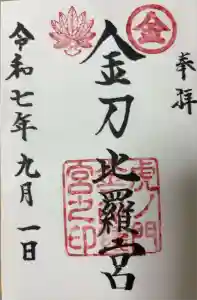 奉拝
金
金刀比羅宮
虎ノ門
宮之印
令和七年九月一日